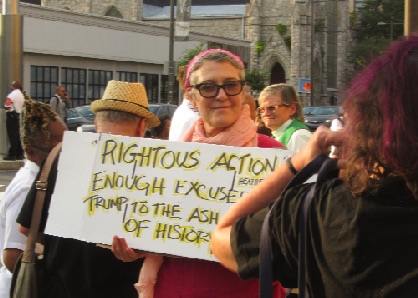 "RIGHTOUS ACTION
ENOUGH EXCUSE
TRUMP, TO THE ASH
OF HISTOR